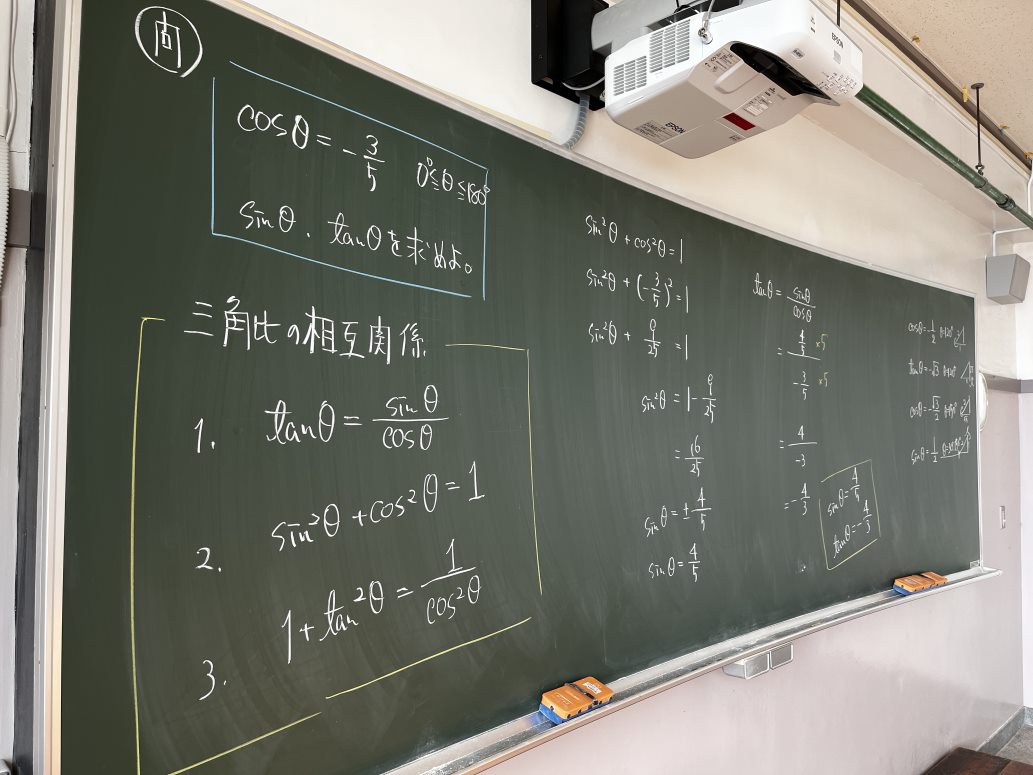 問
cosθ = -3/5 0°≦θ≦180°
sinθ、tanθを求めよ。
三角比の相互関係
1. tanθ = sinθ/cosθ
2. sin²θ + cos²θ = 1
3. 1 + tan²θ = 1/cos²θ
sin²θ + cos²θ = 1
sin²θ + (-3/5)² = 1
sin²θ + 9/25 = 1
sin²θ = 1 - 9/25
= 16/25
sinθ = ± 4/5
sinθ = 4/5
tanθ = sinθ/cosθ
= 4/5 ×5 / -3/5 ×5
= 4/-3
= -4/3
sinθ = 4/5
tanθ = -4/3
cosθ = -1/2
tanθ = -√3
cosθ = -√3/2
sinθ = 1/2
EPSON
EPSON